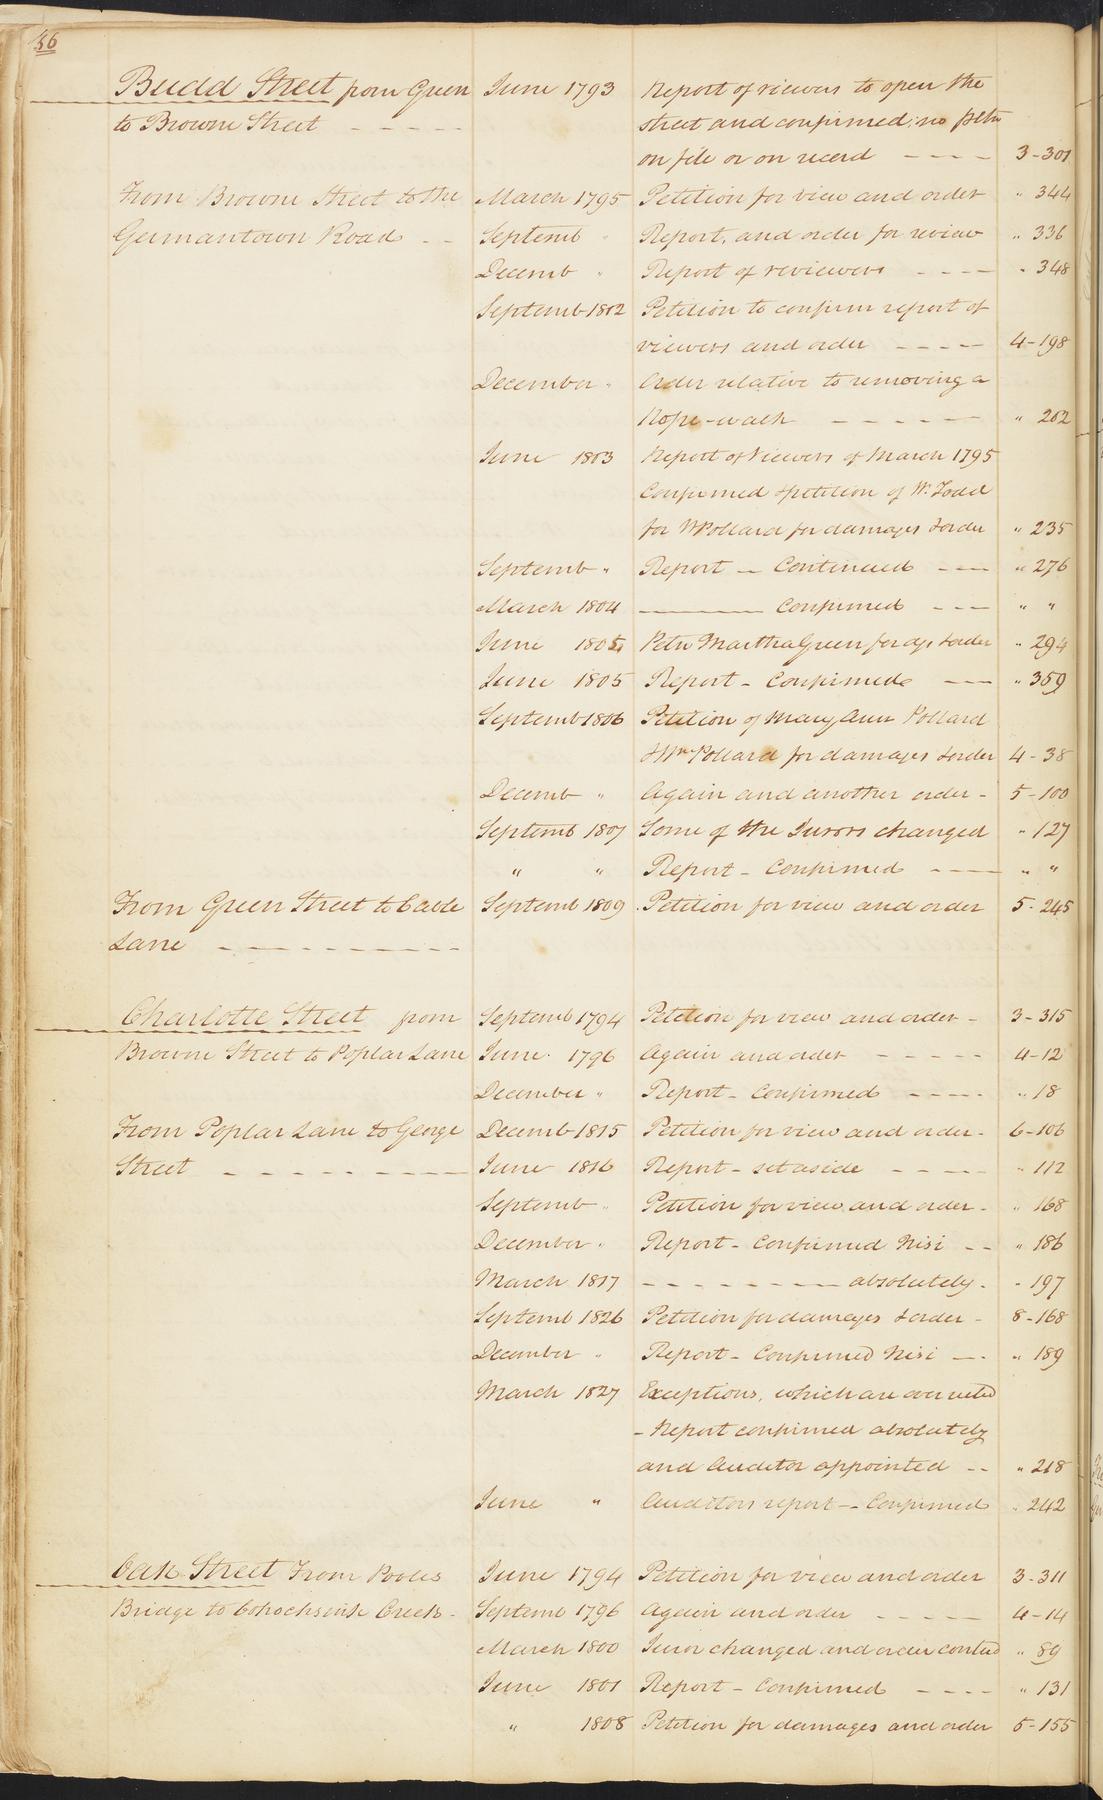 36
Budd Street from Green June 1793 Report of viewers to open the
to Browne Street - - - - - street and confirmed; no petn
on file or on record - - - - 3-301
From Browne Street to the March 1795 Petition for view and order " 344
Germantown Road - - Septemb " Report, and order for review " 336
Decemb " Report of reviewers - - - - " 348
Septemb 1802 Petition to confirm report of
viewers and order - - - - 4-198
December " Order relative to removing a
Rope-walk - - - - - - " 202
June 1803 Report of Viewers of March 1795
Confirmed & petition of Wm Todd
for W Pollard for damages & order " 235
Septemb " Report - Continued - - - " 276
March 1804 ——— Confirmed - - - " "
June 1805 Petn Martha Green for dgs & order " 294
June 1805 Report - Confirmed - - " 359
Septemb 1806 Petition of Mary Ann Pollard
& Wm Pollard for damages & order 4-38
Decemb " Again and another order - 5-100
Septemb 1807 Some of the Jurors changed " 127
" " Report - Confirmed - - - - " "
From Green Street to Cable Septemb 1809 Petition for view and order 5-245
Lane - - - - - - - - - -
Charlotte Street from Septemb 1794 Petition for view and order - 3-315
Browne Street to Poplar Lane June 1796 Again and order - - - - - 4-12
December " Report - Confirmed - - - - " 18
From Poplar Lane to George Decemb 1815 Petition for view and order - 6-106
Street - - - - - - - - - June 1816 Report - set aside - - - - " 112
Septemb " Petition for view and order - " 168
December " Report - Confirmed Nisi - - " 186
March 1817 - - - - - - - - absolutely - " 197
Septemb 1826 Petition for damages & order - 8-168
December " Report - Confirmed Nisi - - " 189
March 1827 Exceptions, which are overruled
- Report confirmed absolutely
and Auditor appointed - - " 218
June " Auditors report - Confirmed " 242
Oak Street From Pooles June 1794 Petition for view and order 3-311
Bridge to Cohocksink Creek - Septemb 1796 Again and order - - - - - 4-14
March 1800 Juror changed and order contued " 89
June 1801 Report - Confirmed - - - - " 131
" 1808 Petition for damages and order 5-155